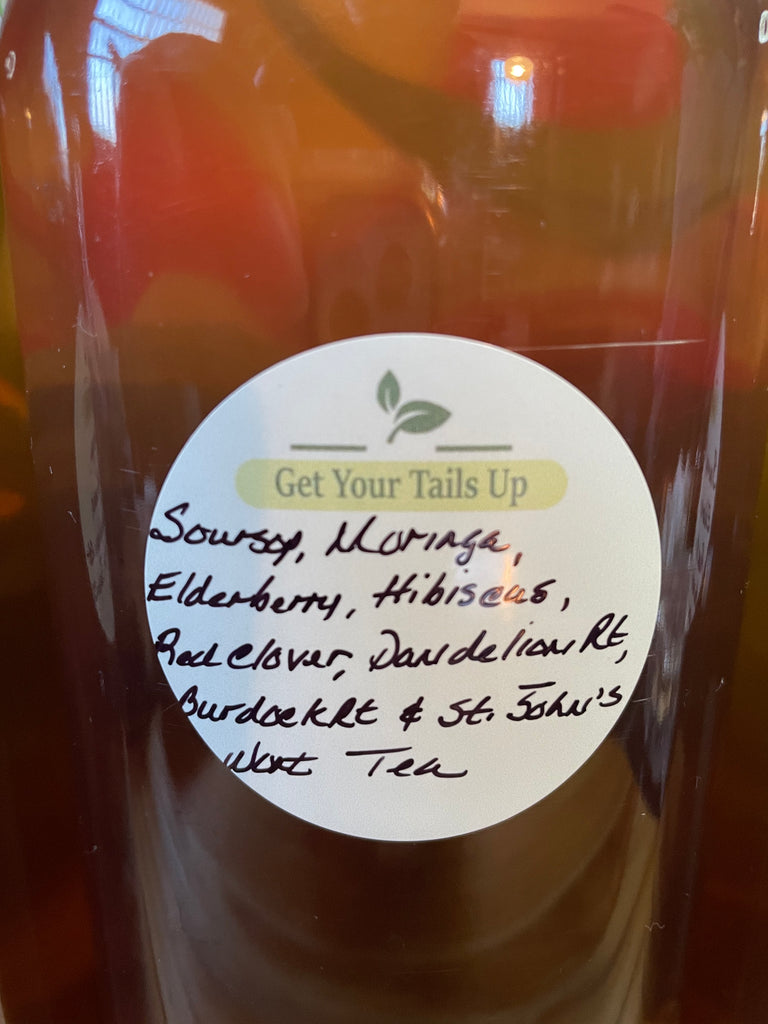 Get Your Tails Up
Soursop, Moringa,
Elderberry, Hibiscus,
Red Clover, Dandelion Rt,
Burdock Rt & St. John's
Wort Tea